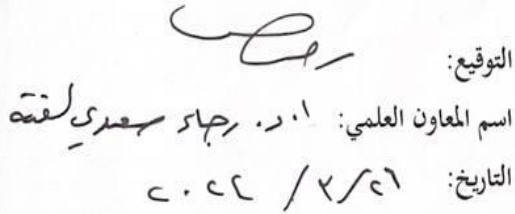 التوقيع:
اسم المعاون العلمي: ا.د. رجاء سعدي لفتة
التاريخ: ٢٦/٣/٢٠٢٤